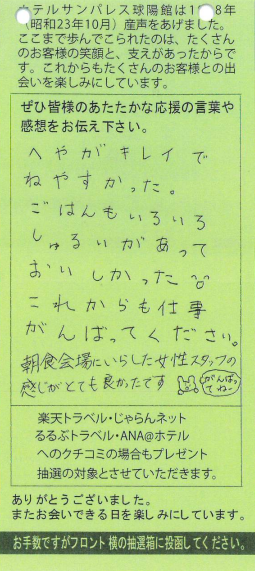 ホテルサンパレス球陽館は1948年
(昭和23年10月)産声をあげました。
ここまで歩んでこられたのは、たくさん
のお客様の笑顔と、支えがあったからで
す。これからもたくさんのお客様との出
会いを楽しみにしています。
ぜひ皆様のあたたかな応援の言葉や
感想をお伝え下さい。
へやがキレイで
ねやすかった。
ごはんもいろいろ
しゅるいがあって
おいしかった
これからも仕事
がんばってください。
朝食会場にいらした女性スタッフの
感じがとても良かったです
がんばっ
てねー
楽天トラベル・じゃらんネット
るるぶトラベル・ANA@ホテル
へのクチコミの場合もプレゼント
抽選の対象とさせていただきます。
ありがとうございました。
またお会いできる日を楽しみにしています。
お手数ですがフロント横の抽選箱に投函してください。